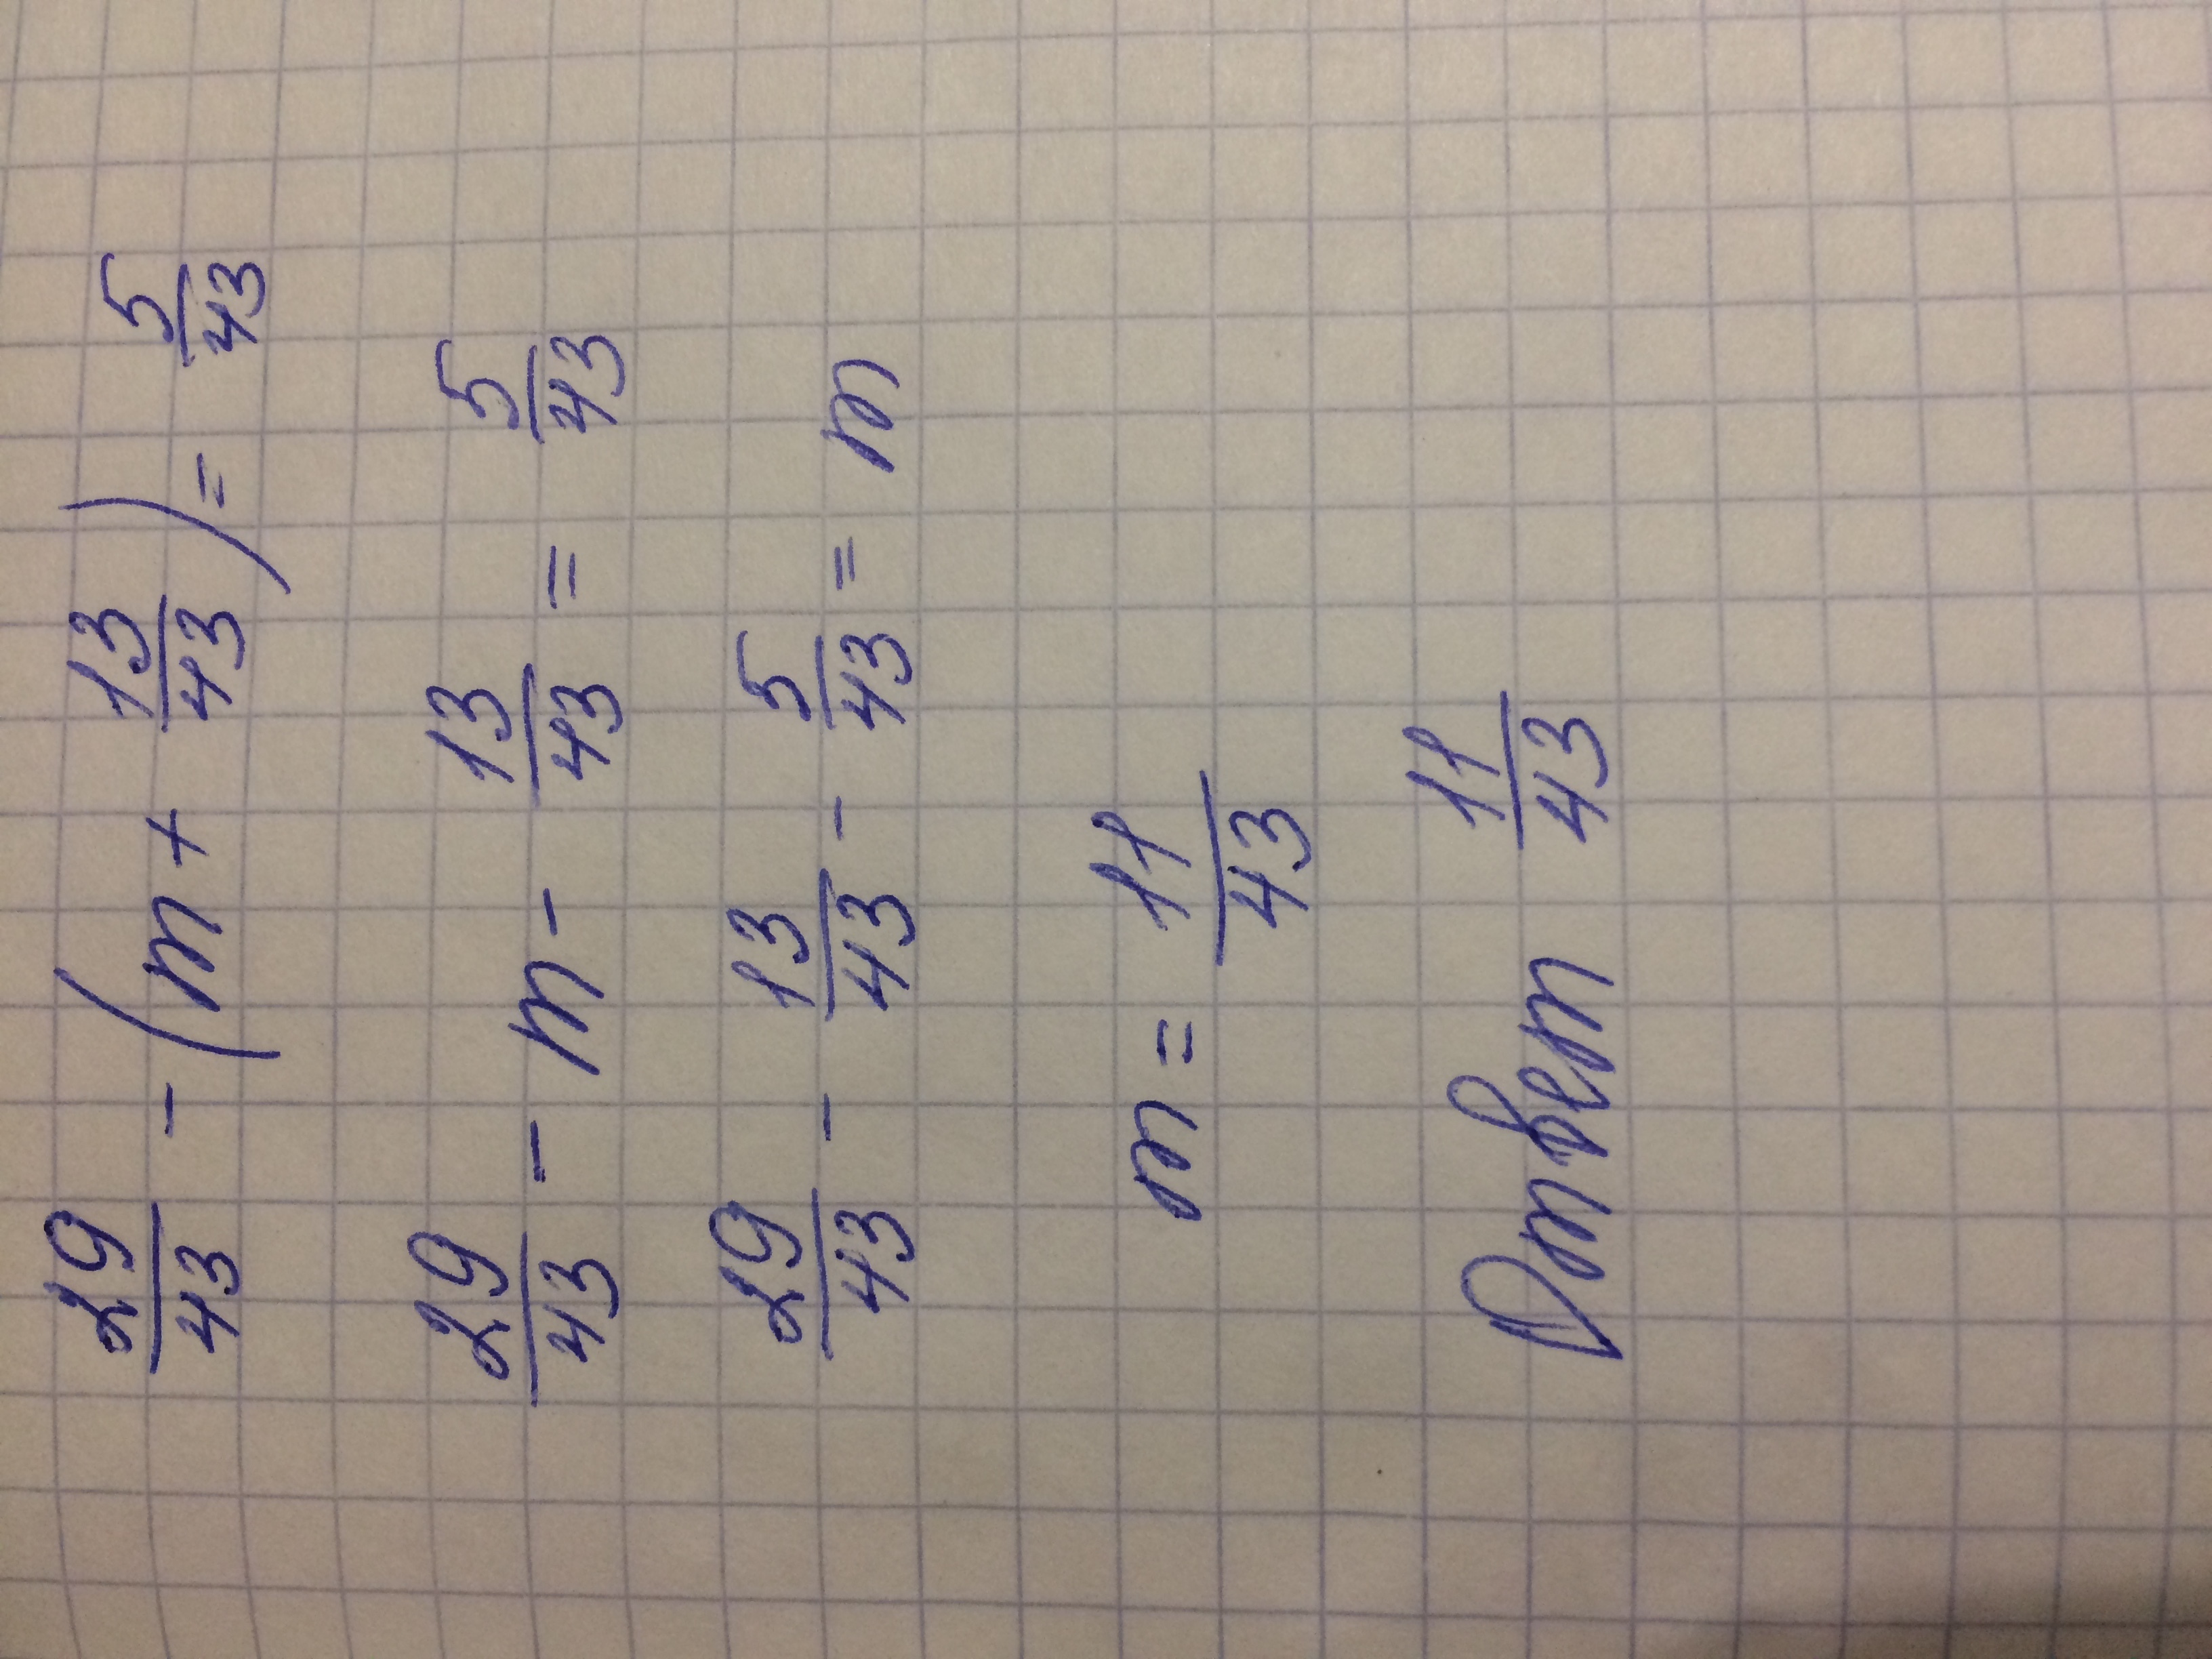 29/43 - (m + 13/43) = 5/43
29/43 - m - 13/43 = 5/43
29/43 - 13/43 - 5/43 = m
m = 11/43
Ответ 11/43